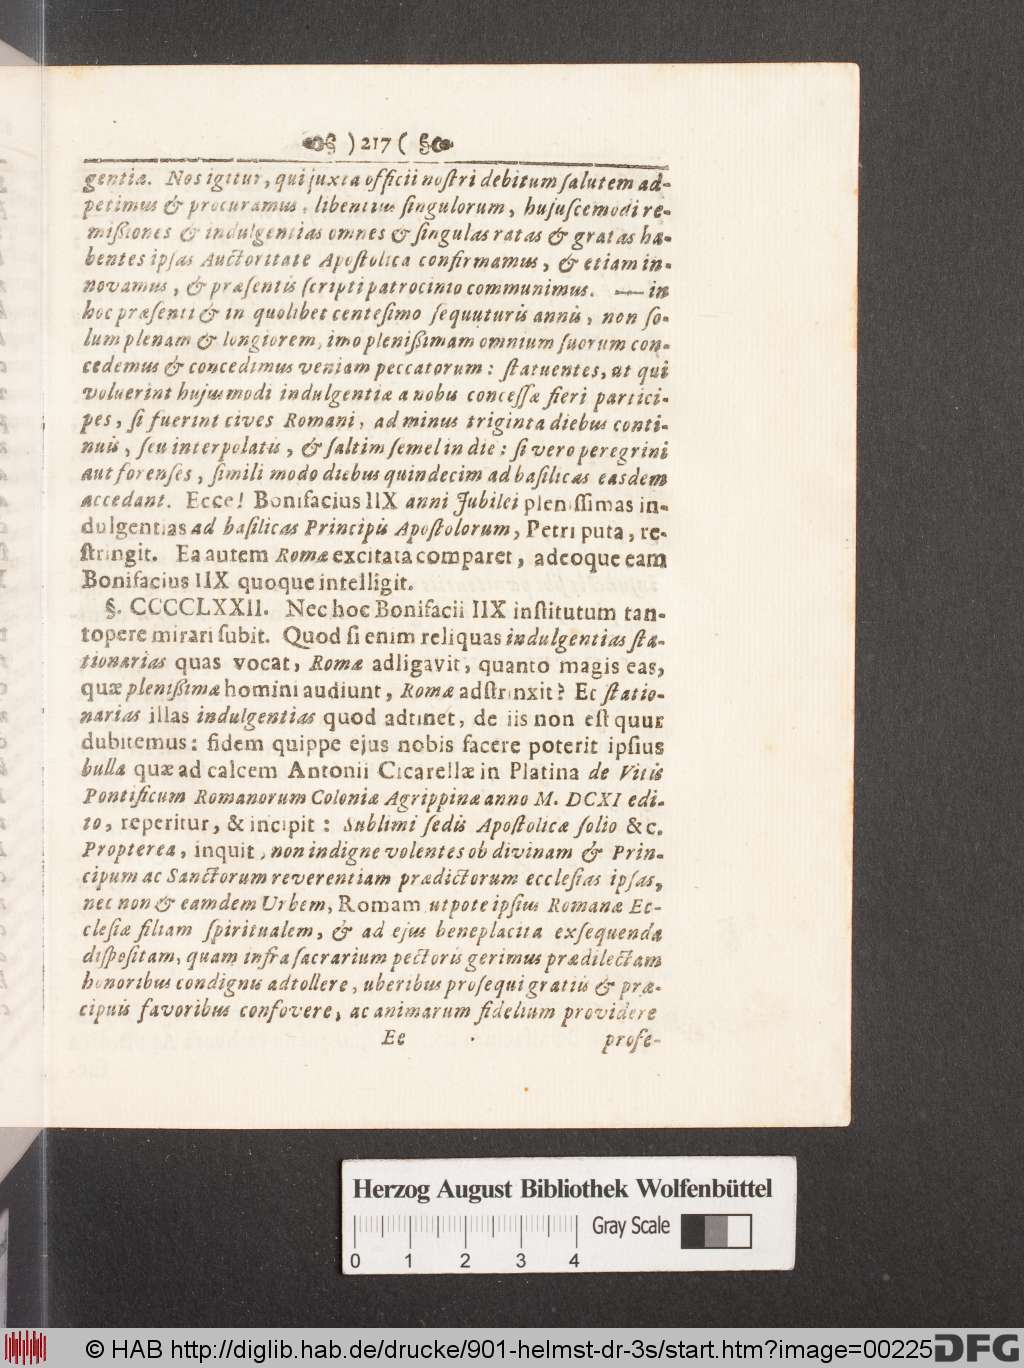 )217(
gentiæ. Nos igitur, qui juxta officii nostri debitum salutem ad-
petimus & procuramus, libentius singulorum, hujuscemodi re-
missiones & indulgentias omnes & singulas ratas & gratas ha-
bentes ipsas Auctoritate Apostolica confirmamus, & etiam in-
novamus, & præsentis scripti patrocinio communimus. — in
hoc præsenti & in quolibet centesimo sequuturis annis, non so-
lum plenam & longiorem, imo plenißimam omnium suorum con-
cedemus & concedimus veniam peccatorum: statuentes, ut qui
voluerint hujusmodi indulgentiæ a nobis concessæ fieri partici-
pes, si fuerint cives Romani, ad minus triginta diebus conti-
nuis, seu interpolatis, & saltim semel in die: si vero peregrini
aut forenses, simili modo diebus quindecim ad basilicas easdem
accedant. Ecce! Bonifacius IIX anni Jubilei plenissimas in-
dulgentias ad basilicas Principis Apostolorum, Petri puta, re-
stringit. Ea autem Romæ excitata comparet, adeoque eam
Bonifacius IIX quoque intelligit.
§. CCCCLXXII. Nec hoc Bonifacii IIX institutum tan-
topere mirari subit. Quod si enim reliquas indulgentias sta-
tionarias quas vocat, Romæ adligavit, quanto magis eas,
quæ plenißimæ homini audiunt, Romæ adstrinxit? Et statio-
narias illas indulgentias quod adtinet, de iis non est quur
dubitemus: fidem quippe ejus nobis facere poterit ipsius
bulla quæ ad calcem Antonii Cicarellæ in Platina de Vitis
Pontificum Romanorum Coloniæ Agrippinæ anno M. DCXI edi-
to, reperitur, & incipit: Sublimi sedis Apostolicæ solio &c.
Propterea, inquit, non indigne volentes ob divinam & Prin-
cipum ac Sanctorum reverentiam prædictorum ecclesias ipsas,
nec non & eamdem Urbem, Romam utpote ipsius Romanæ Ec-
clesiæ filiam spiritualem, & ad ejus beneplacita exsequenda
dispositam, quam infra sacrarium pectoris gerimus prædilectam
honoribus condignis adtollere, uberibus prosequi gratiis & præ-
cipuis favoribus confovere, ac animarum fidelium providere
Ee
profe-
Herzog August Bibliothek Wolfenbüttel
Gray Scale
0 1 2 3 4
© HAB http://diglib.hab.de/drucke/901-helmst-dr-3s/start.htm?image=00225
DFG